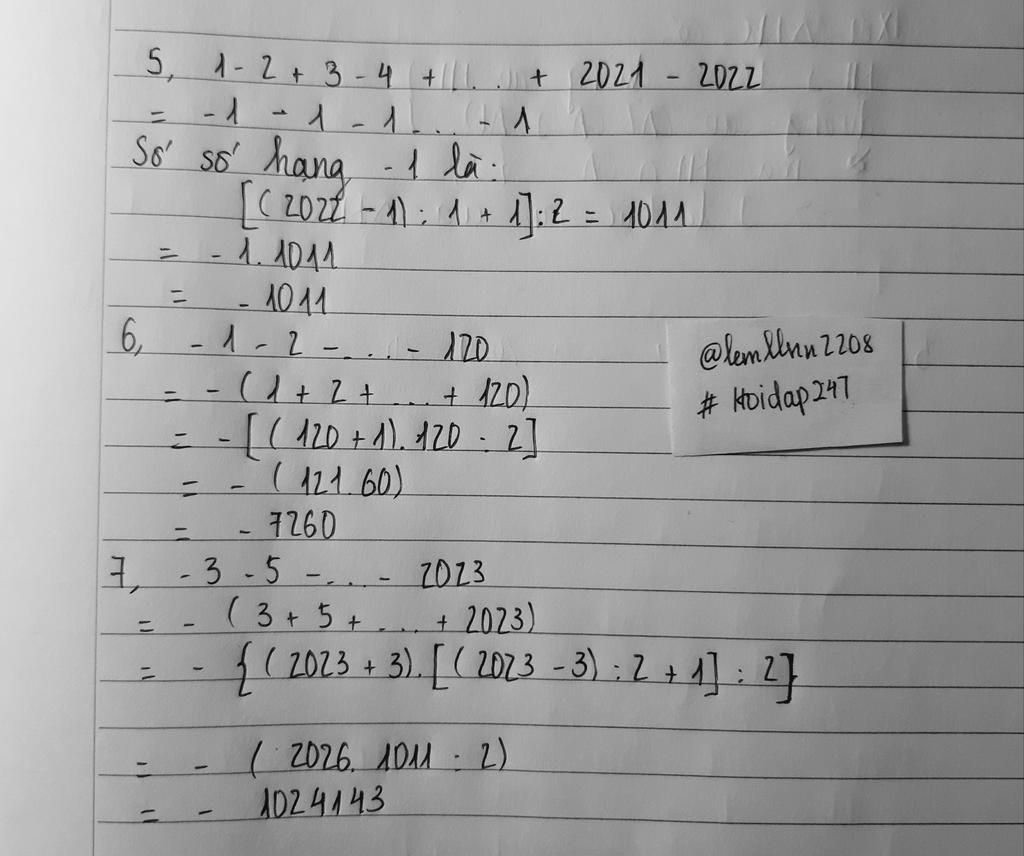 5, 1 - 2 + 3 - 4 + ... + 2021 - 2022
= -1 - 1 - 1 ... - 1
Số số hạng -1 là:
[(2022 - 1) : 1 + 1] : 2 = 1011
= - 1. 1011
= - 1011
6, - 1 - 2 - ... - 120
= - (1 + 2 + ... + 120)
= - [(120 + 1). 120 : 2]
= - (121. 60)
= - 7260
@lemllnn2208
# Hoidap247
7, - 3 - 5 - ... - 2023
= - (3 + 5 + ... + 2023)
= - {(2023 + 3). [(2023 - 3) : 2 + 1] : 2}
= - (2026. 1011 : 2)
= - 1024143